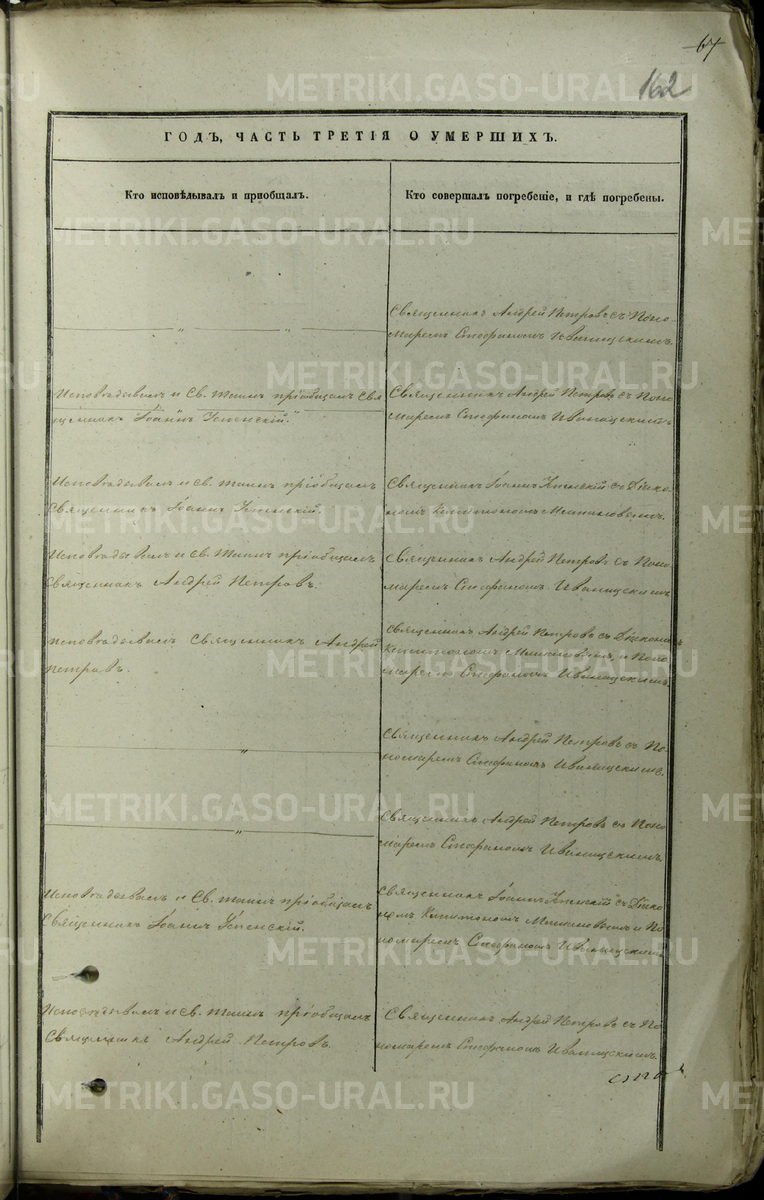 67
162
ГОДЪ, ЧАСТЬ ТРЕТІЯ О УМЕРШИХЪ.
Кто исповѣдывалъ и пріобщалъ.
Кто совершалъ погребеніе, и гдѣ погребены.
Священникъ Андрей Петровъ съ Поно-
маремъ Стефаномъ Иваницскимъ.
Исповѣдывалъ и Св. таинъ пріобщалъ Свя
щенникъ Іоаннъ Успенскій.
Священникъ Андрей Петровъ съ Поно
маремъ Стефаномъ Иваницскимъ
Исповѣдывалъ и св. таинъ пріобщалъ
Священникъ Іоаннъ Успенскій.
Священникъ Іоаннъ Успенскій съ Діако-
номъ Капитономъ
Исповѣдывалъ и св. таинъ пріобщалъ
Священникъ Андрей Петровъ.
Священникъ Андрей Петровъ съ Поно
маремъ Стефаномъ Иваницскимъ
исповѣдывалъ Священникъ Андрей
Петровъ.
Священникъ Андрей Петровъ съ Діакономъ
Капитономъ и Поно
маремъ Стефаномъ Иваницскимъ.
Священникъ Андрей Петровъ съ По-
номаремъ Стефаномъ Иваницскимъ.
Священникъ Андрей Петровъ съ Поно
маремъ Стефаномъ Иваницскимъ
Исповѣдывалъ и Св. таинъ пріобщалъ
Священникъ Іоаннъ Успенскій.
Священникъ Іоаннъ Успенскій съ Діако-
номъ Капитономъ и По
номаремъ Стефаномъ Иваницскимъ
Исповѣдывалъ и Св. таинъ пріобщалъ
Священникъ Андрей Петровъ.
Священникъ Андрей Петровъ съ По
номаремъ Стефаномъ Иваницскимъ.
METRIKI.GASO-URAL.RU